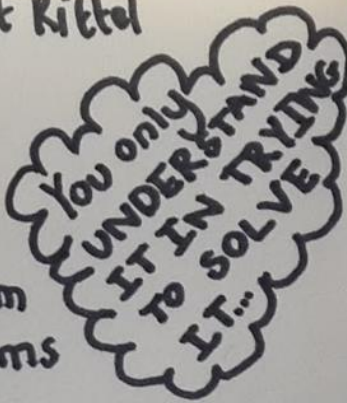 t Rittel
You only
UNDERSTAND
IT IN TRYING
TO SOLVE
IT...
m
ms